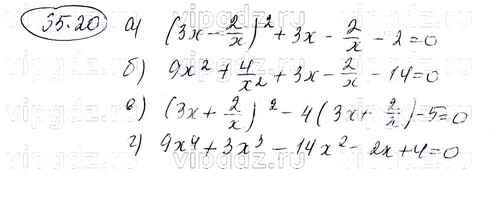 35.20 а) (3x - 2/x)² + 3x - 2/x - 2 = 0
б) 9x² + 4/x² + 3x - 2/x - 14 = 0
в) (3x + 2/x)² - 4(3x + 2/x) - 5 = 0
г) 9x⁴ + 3x³ - 14x² - 2x + 4 = 0
vipgdz.ru